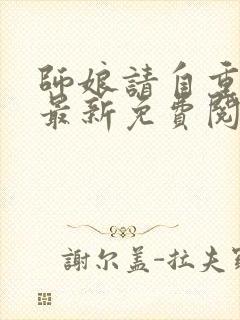 師娘請自重
最新免費閱
謝尔盖-拉夫羅